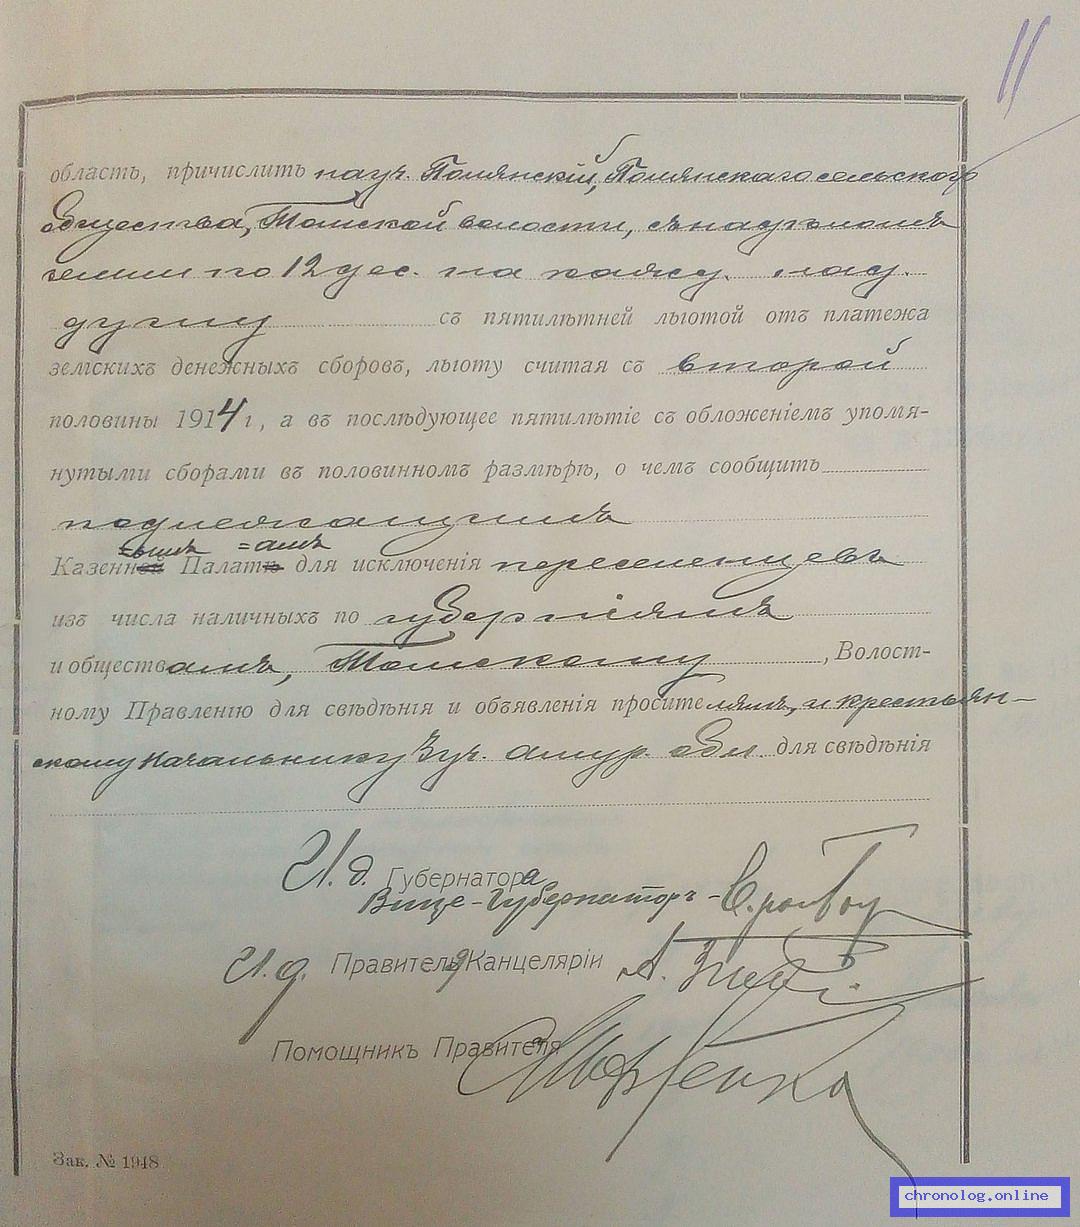 11
область, причислить на уч. Полянскій, Полянскаго сельскаго
общества, Томской волости, съ надѣломъ
земли по 12 дес. на кажд. над.
душу съ пятилѣтней льготой отъ платежа
земскихъ денежныхъ сборовъ, льготу считая съ второй
половины 1914 г, а въ послѣдующее пятилѣтіе съ обложеніемъ упомя-
нутыми сборами въ половинномъ размѣрѣ, о чемъ сообщить
подлежащимъ
=ымъ =амъ
Казенной Палатѣ для исключенія переселенцевъ
изъ числа наличныхъ по губерніямъ
и обществамъ, Томскому, Волост-
ному Правленію для свѣдѣнія и объявленія просителямъ, и крестьян-
скому Начальнику 3 уч. Амур. обл. для свѣдѣнія
И. д. Губернатора
Вице-Губернаторъ
И. д. Правителя Канцеляріи А.
Помощникъ Правителя
Зак. № 1948
chronolog.online